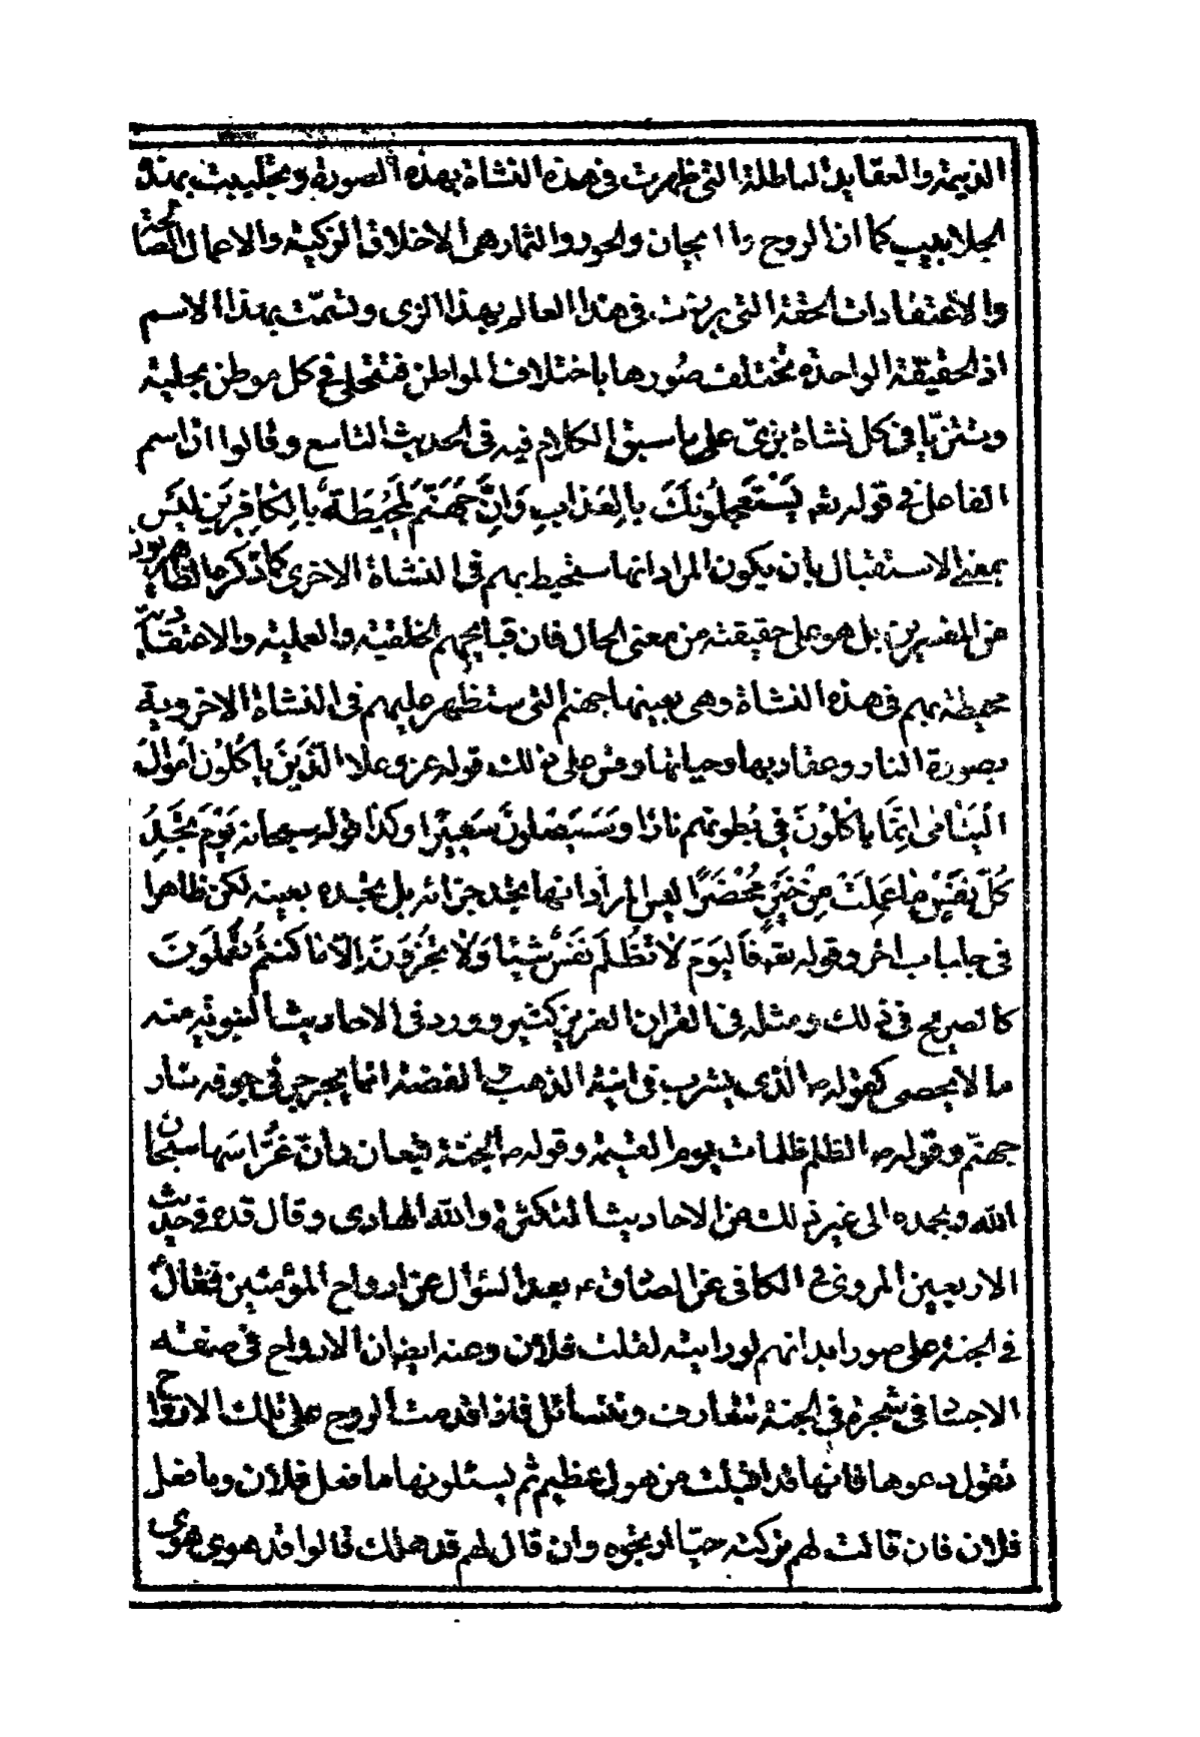 الذميمة والعقايد الباطلة التى ظهرت فى هذه النشاة بهذه الصورة وتجلببت بهذه
الجلابيب كما ان الروح والريحان والحور والثمار هى الاخلاق الزكية والاعمال الصالحة
والاعتقادات الحقة التى برزت فى هذا العالم بهذا الزى وتسمّت بهذا الاسم
اذ الحقيقة الواحدة تختلف صُورها باختلاف المواطن فتتحلى فى كل موطن بحلية
وتتزيّا فى كل نشاة بزىّ على ما سبق الكلام فيه فى الحديث التاسع وقالوا ان اسم
الفاعل فى قوله تعه يَسْتَعجِلُونَكَ بِالعَذابِ وَاِنَّ جَهَنَّمَ لَمُحِيطَةٌ بِالكافِرِينَ لَيسَ
بمعنى الاستقبال بان يكون المراد انها ستحيط بهم فى النشاة الاخرى كما ذكره الظاهريون
من المفسرين بل هو على حقيقته من معنى الحال فان قبايحهم الخلقية والعملية والاعتقادية
محيطة بهم فى هذه النشاة وهى بعينها جهنم التى ستظهر عليهم فى النشاة الاخروية
بصورة النار وعقاربها وحياتها وقس على ذلك قوله عز وعلا الَّذِينَ يَاكُلُونَ اَموالَ
اليَتامى اِنَّما يَاكُلُونَ فِى بُطُونِهِم نارًا وَسَيَصلَونَ سَعِيرًا وكذا قوله سبحانه يَومَ تَجِدُ
كُلُّ نَفسٍ ما عَمِلَتْ مِن خَيرٍ مُحْضَرًا ليس المراد انها تجد جزائه بل تجده بعينه لكن ظاهرا
فى جلباب اخر وقوله تعه فَاليَومَ لا تُظْلَمُ نَفسٌ شَيئا وَلا تُجزَونَ اِلّا ما كُنتُم تَعمَلُونَ
كالصريح فى ذلك ومثله فى القران العزيز كثير وورد فى الاحاديث النبوية منه
ما لا يحصى كقوله ص الذى يشرب فى انية الذهب والفضة انما يجرجر فى جوفه نار
جهنّم وقوله ص الظلم ظلمات يوم القيمة وقوله ص الجنة قيعان وانّ غراسها سبحان
الله وبحمده الى غير ذلك من الاحاديث المتكثرة والله الهادى وقال قده فى حديث
الاربعين المروى فى الكافى عن الصادق ع بعد السؤال عن ارواح المؤمنين فقال
فى الجنة على صور ابدانهم لو رايته لقلت فلان وعنه ايضا ان الارواح فى صفة
الاجساد فى شجرة فى الجنة تتعارف وتتسائل فاذا قدمت الروح على تلك الارواح
تقول دعوها فانها قد اقبلت من هول عظيم ثم يسئلونها ما فعل فلان وما فعل
فلان فان قالت لهم تركته حيّا ارتجوه وان قال لهم قد هلك قالوا قد هوى هوى